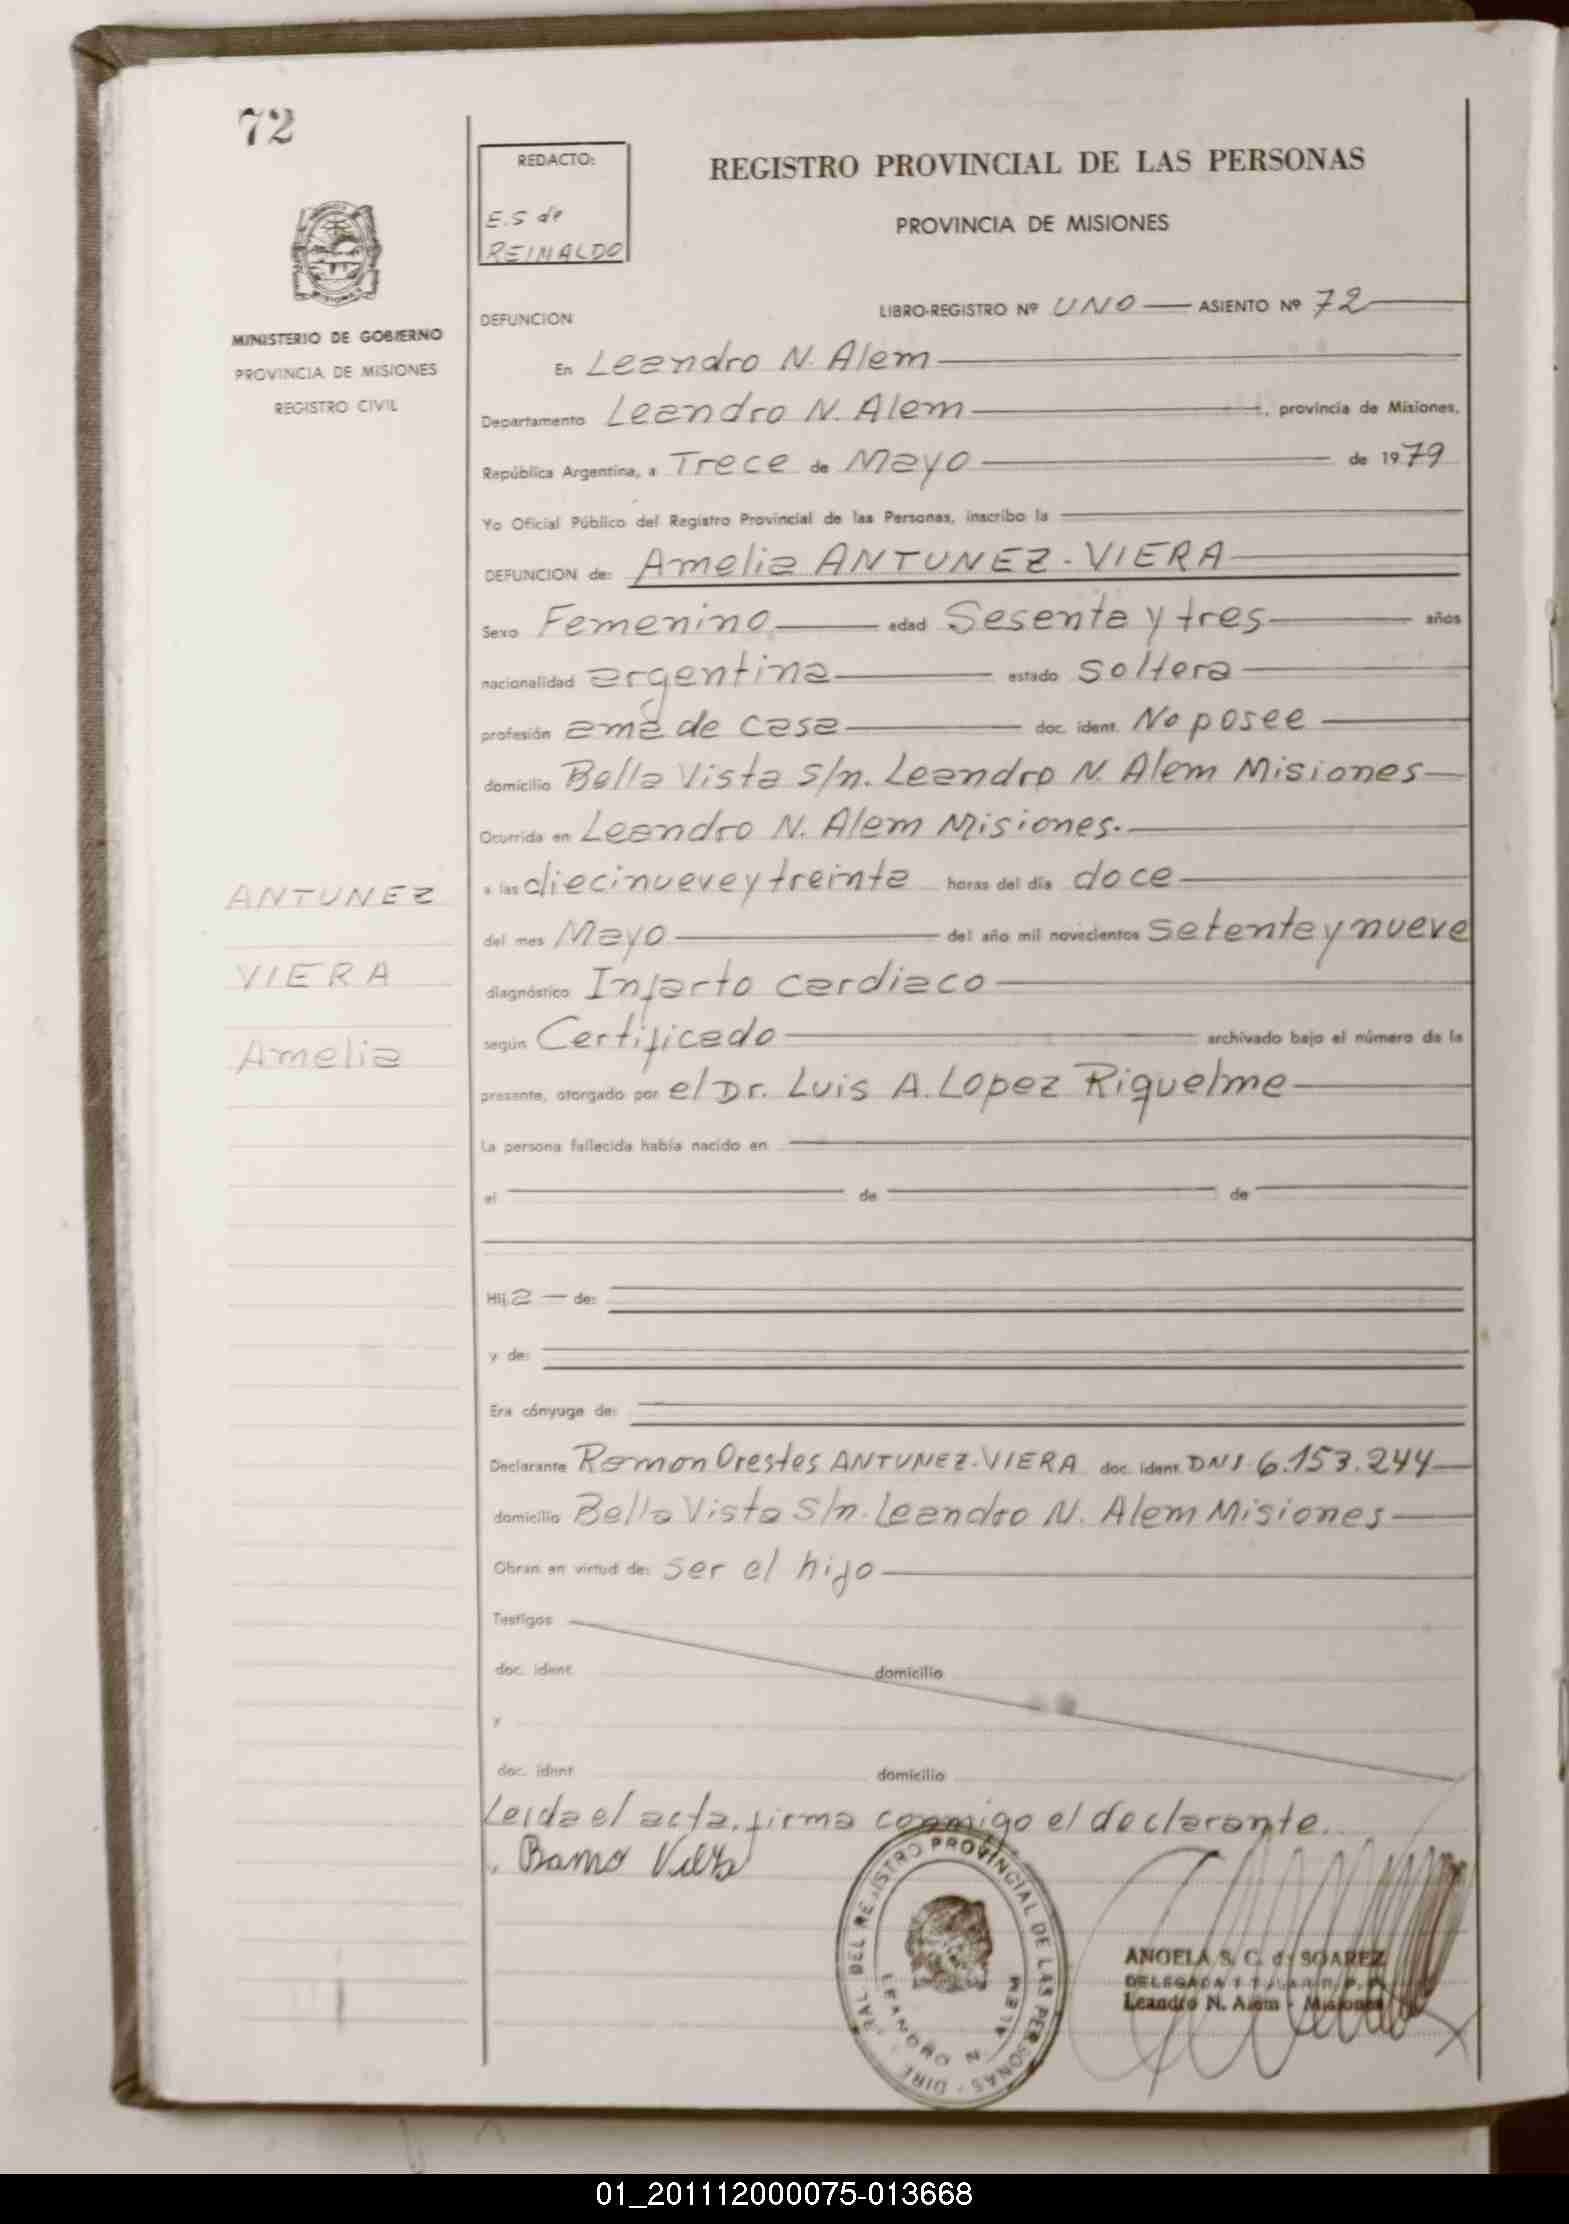 72
REDACTO:
E.S de
REINALDO
REGISTRO PROVINCIAL DE LAS PERSONAS
PROVINCIA DE MISIONES
MINISTERIO DE GOBIERNO
PROVINCIA DE MISIONES
REGISTRO CIVIL
DEFUNCION
LIBRO-REGISTRO Nº UNO ASIENTO Nº 72
En Leandro N. Alem
Departamento Leandro N. Alem, provincia de Misiones,
República Argentina, a Trece de Mayo de 1979
Yo Oficial Público del Registro Provincial de las Personas, inscribo la
DEFUNCION de: Amelia ANTUNEZ-VIERA
Sexo Femenino edad Sesenta y tres años
nacionalidad argentina estado soltera
profesión ama de casa doc. ident. No posee
domicilio Bella Vista s/n. Leandro N. Alem Misiones
Ocurrida en Leandro N. Alem Misiones.
a las diecinueve y treinta horas del día doce
del mes Mayo del año mil novecientos setenta y nueve
diagnóstico Infarto cardiaco
según Certificado archivado bajo el número de la
presente, otorgado por el Dr. Luis A. Lopez Riquelme
ANTUNEZ
VIERA
Amelia
La persona fallecida había nacido en
el de de
Hija de:
y de:
Era cónyuge de:
Declarante Ramon Orestes ANTUNEZ-VIERA doc. ident. DNI 6.153.244
domicilio Bella Vista s/n. Leandro N. Alem Misiones
Obran en virtud de: ser el hijo
Testigos
doc. ident. domicilio
y
doc. ident. domicilio
Leida el acta, firma conmigo el declarante.
DEL REGISTRO PROVINCIAL DE LAS PERSONAS
LEANDRO N. ALEM
ANGELA S. C. de SOAREZ
DELEGADA
Leandro N. Alem - Misiones
01_201112000075-013668